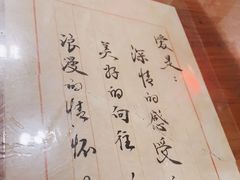 爱是：
深情的感受
美好的向往
浪漫的情怀